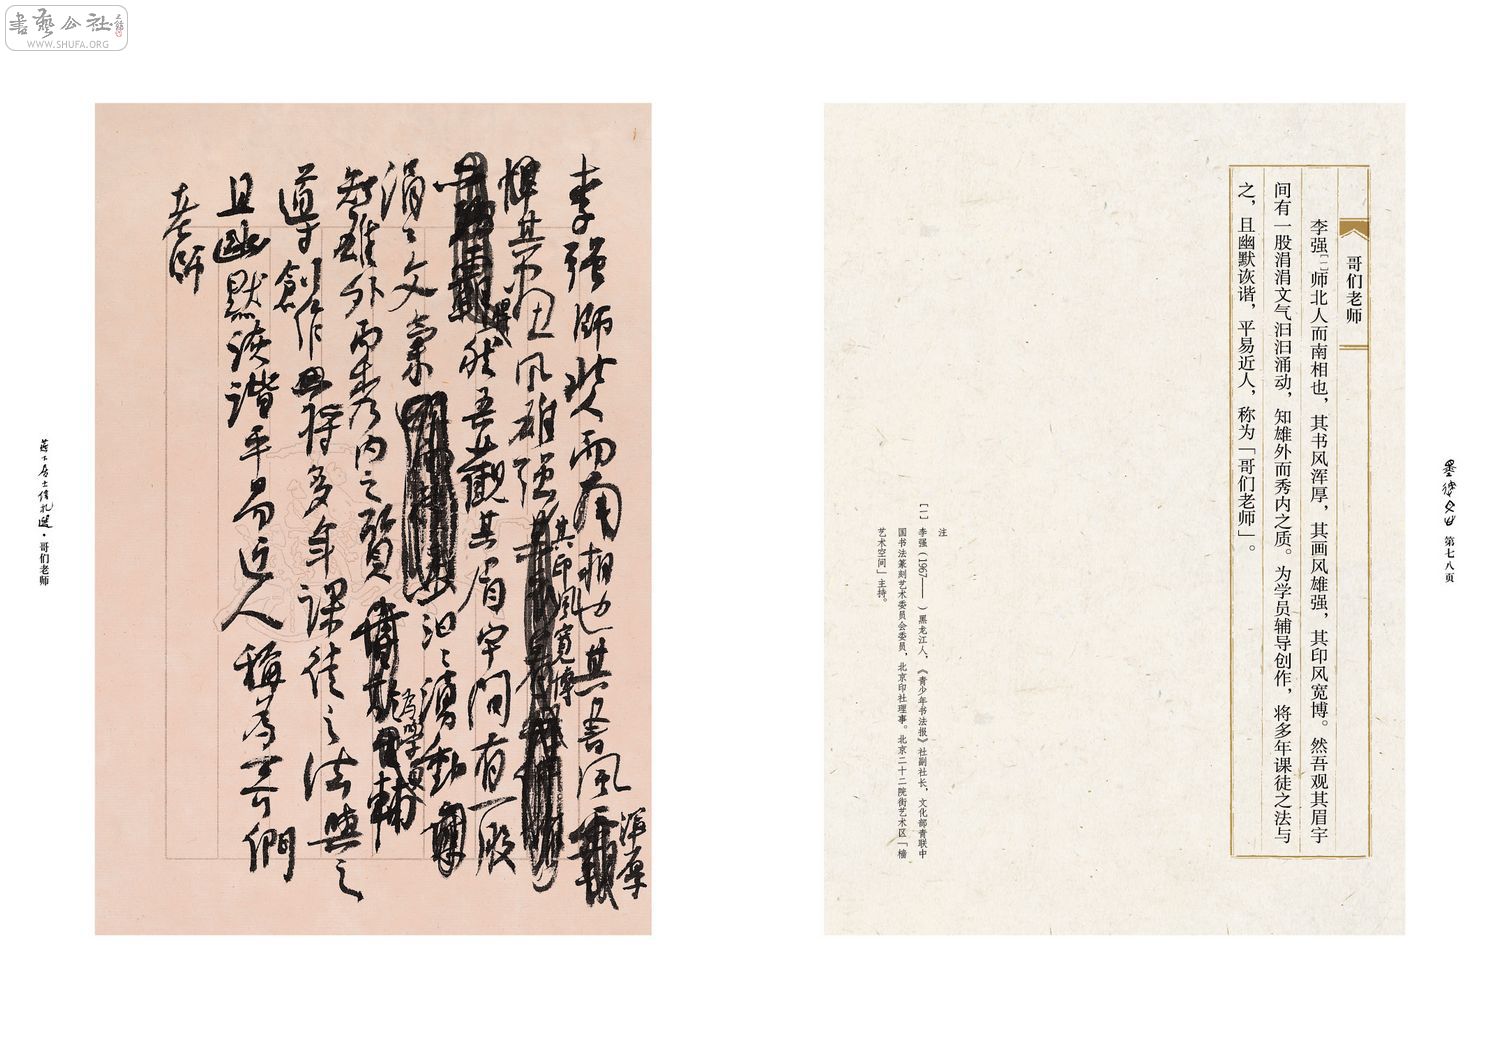 書藝公社
WWW.SHUFA.ORG
哥们老师
李强[一]师北人而南相也，其书风浑厚，其画风雄强，其印风宽博。然吾观其眉宇
间有一股涓涓文气汩汩涌动，知雄外而秀内之质。为学员辅导创作，将多年课徒之法与
之，且幽默诙谐，平易近人，称为「哥们老师」。
注
[一] 李强（1967——　）黑龙江人，《青少年书法报》社副社长，文化部青联中
国书法篆刻艺术委员会委员，北京印社理事。北京二十二院街艺术区「樯
艺术空间」主持。
第七八页
李强師北人而南相也其書风浑厚
其画风雄强其印風寬博
然吾觀其眉宇间有一股
涓涓文氣汩汩湧動
知雄外而秀内之質为学員輔
導創作将多年课徒之法與之
且幽默诙谐平易近人稱为哥們
老师
·哥们老师